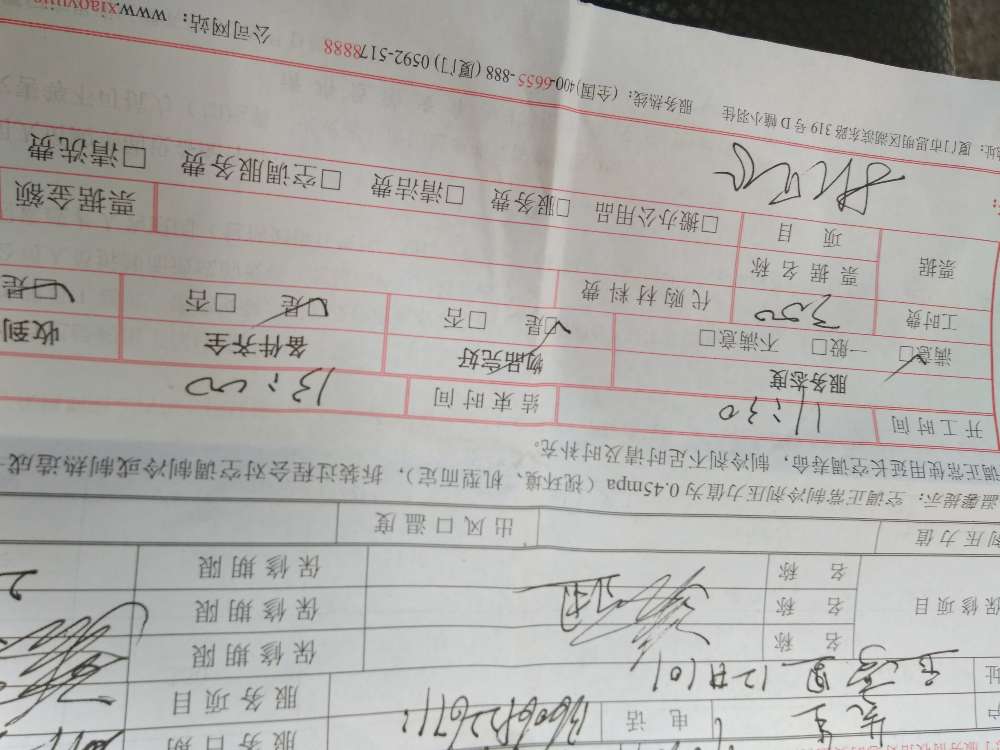 服务日期
电话 13606922671
服务项目
名称 保修期限
保修项目 名称 保修期限
名称 保修期限
剂压力值 出风口温度
温馨提示：空调正常制冷剂压力值为 0.45mpa（视环境、机型而定），拆装过程会对空调制冷或制热造成
调正常使用延长空调寿命，制冷剂不足时请及时补充。
开工时间 11:30 结束时间 13:00
服务态度 物品完好 备件齐全 收到
满意□ 一般□ 不满意□ □是 □否 □是 □否 □是
工时费 350 代购材料费
票据 票据名称 票据金额
项目 □搬办公用品 □服务费 □清洁费 □空调服务费 □清洗费
地址：厦门市思明区湖滨东路 319 号 D 幢小羽佳 服务热线：(全国)400-6655-888 (厦门) 0592-5178888 公司网站：www.xiaoyujia